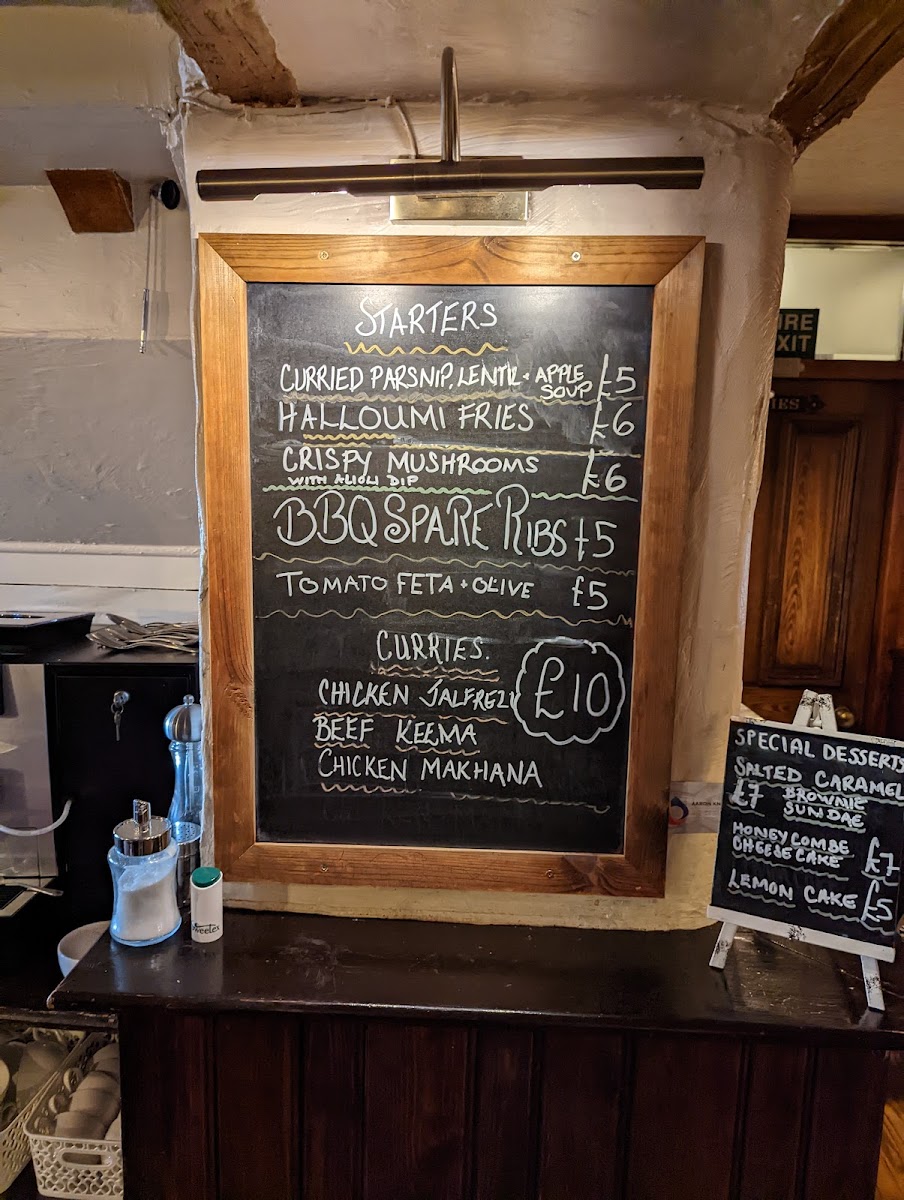 STARTERS
CURRIED PARSNIP, LENTIL + APPLE SOUP £5
HALLOUMI FRIES £6
CRISPY MUSHROOMS £6
WITH ALIOLI DIP
BBQ SPARE RIBS £5
TOMATO FETA + OLIVE £5
CURRIES.
£10
CHICKEN JALFREZI
BEEF KEEMA
CHICKEN MAKHANA
SPECIAL DESSERTS
SALTED CARAMEL
£7 BROWNIE
SUNDAE
HONEYCOMBE
CHEESECAKE £7
LEMON CAKE £5
EXIT